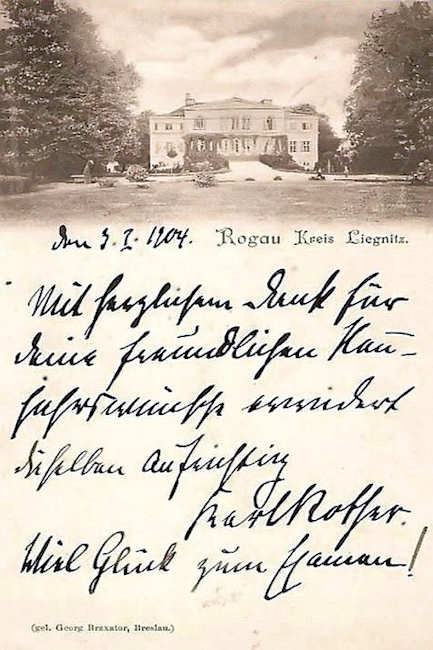 den 3. I. 1904. Rogau Kreis Liegnitz.
Mit herzlichem Dank für
deine freundlichen Neu-
jahrswünsche erwidert
dieselben aufrichtig
Karl Rother.
Viel Glück zum Examen!
(gel. Georg Braxator, Breslau.)